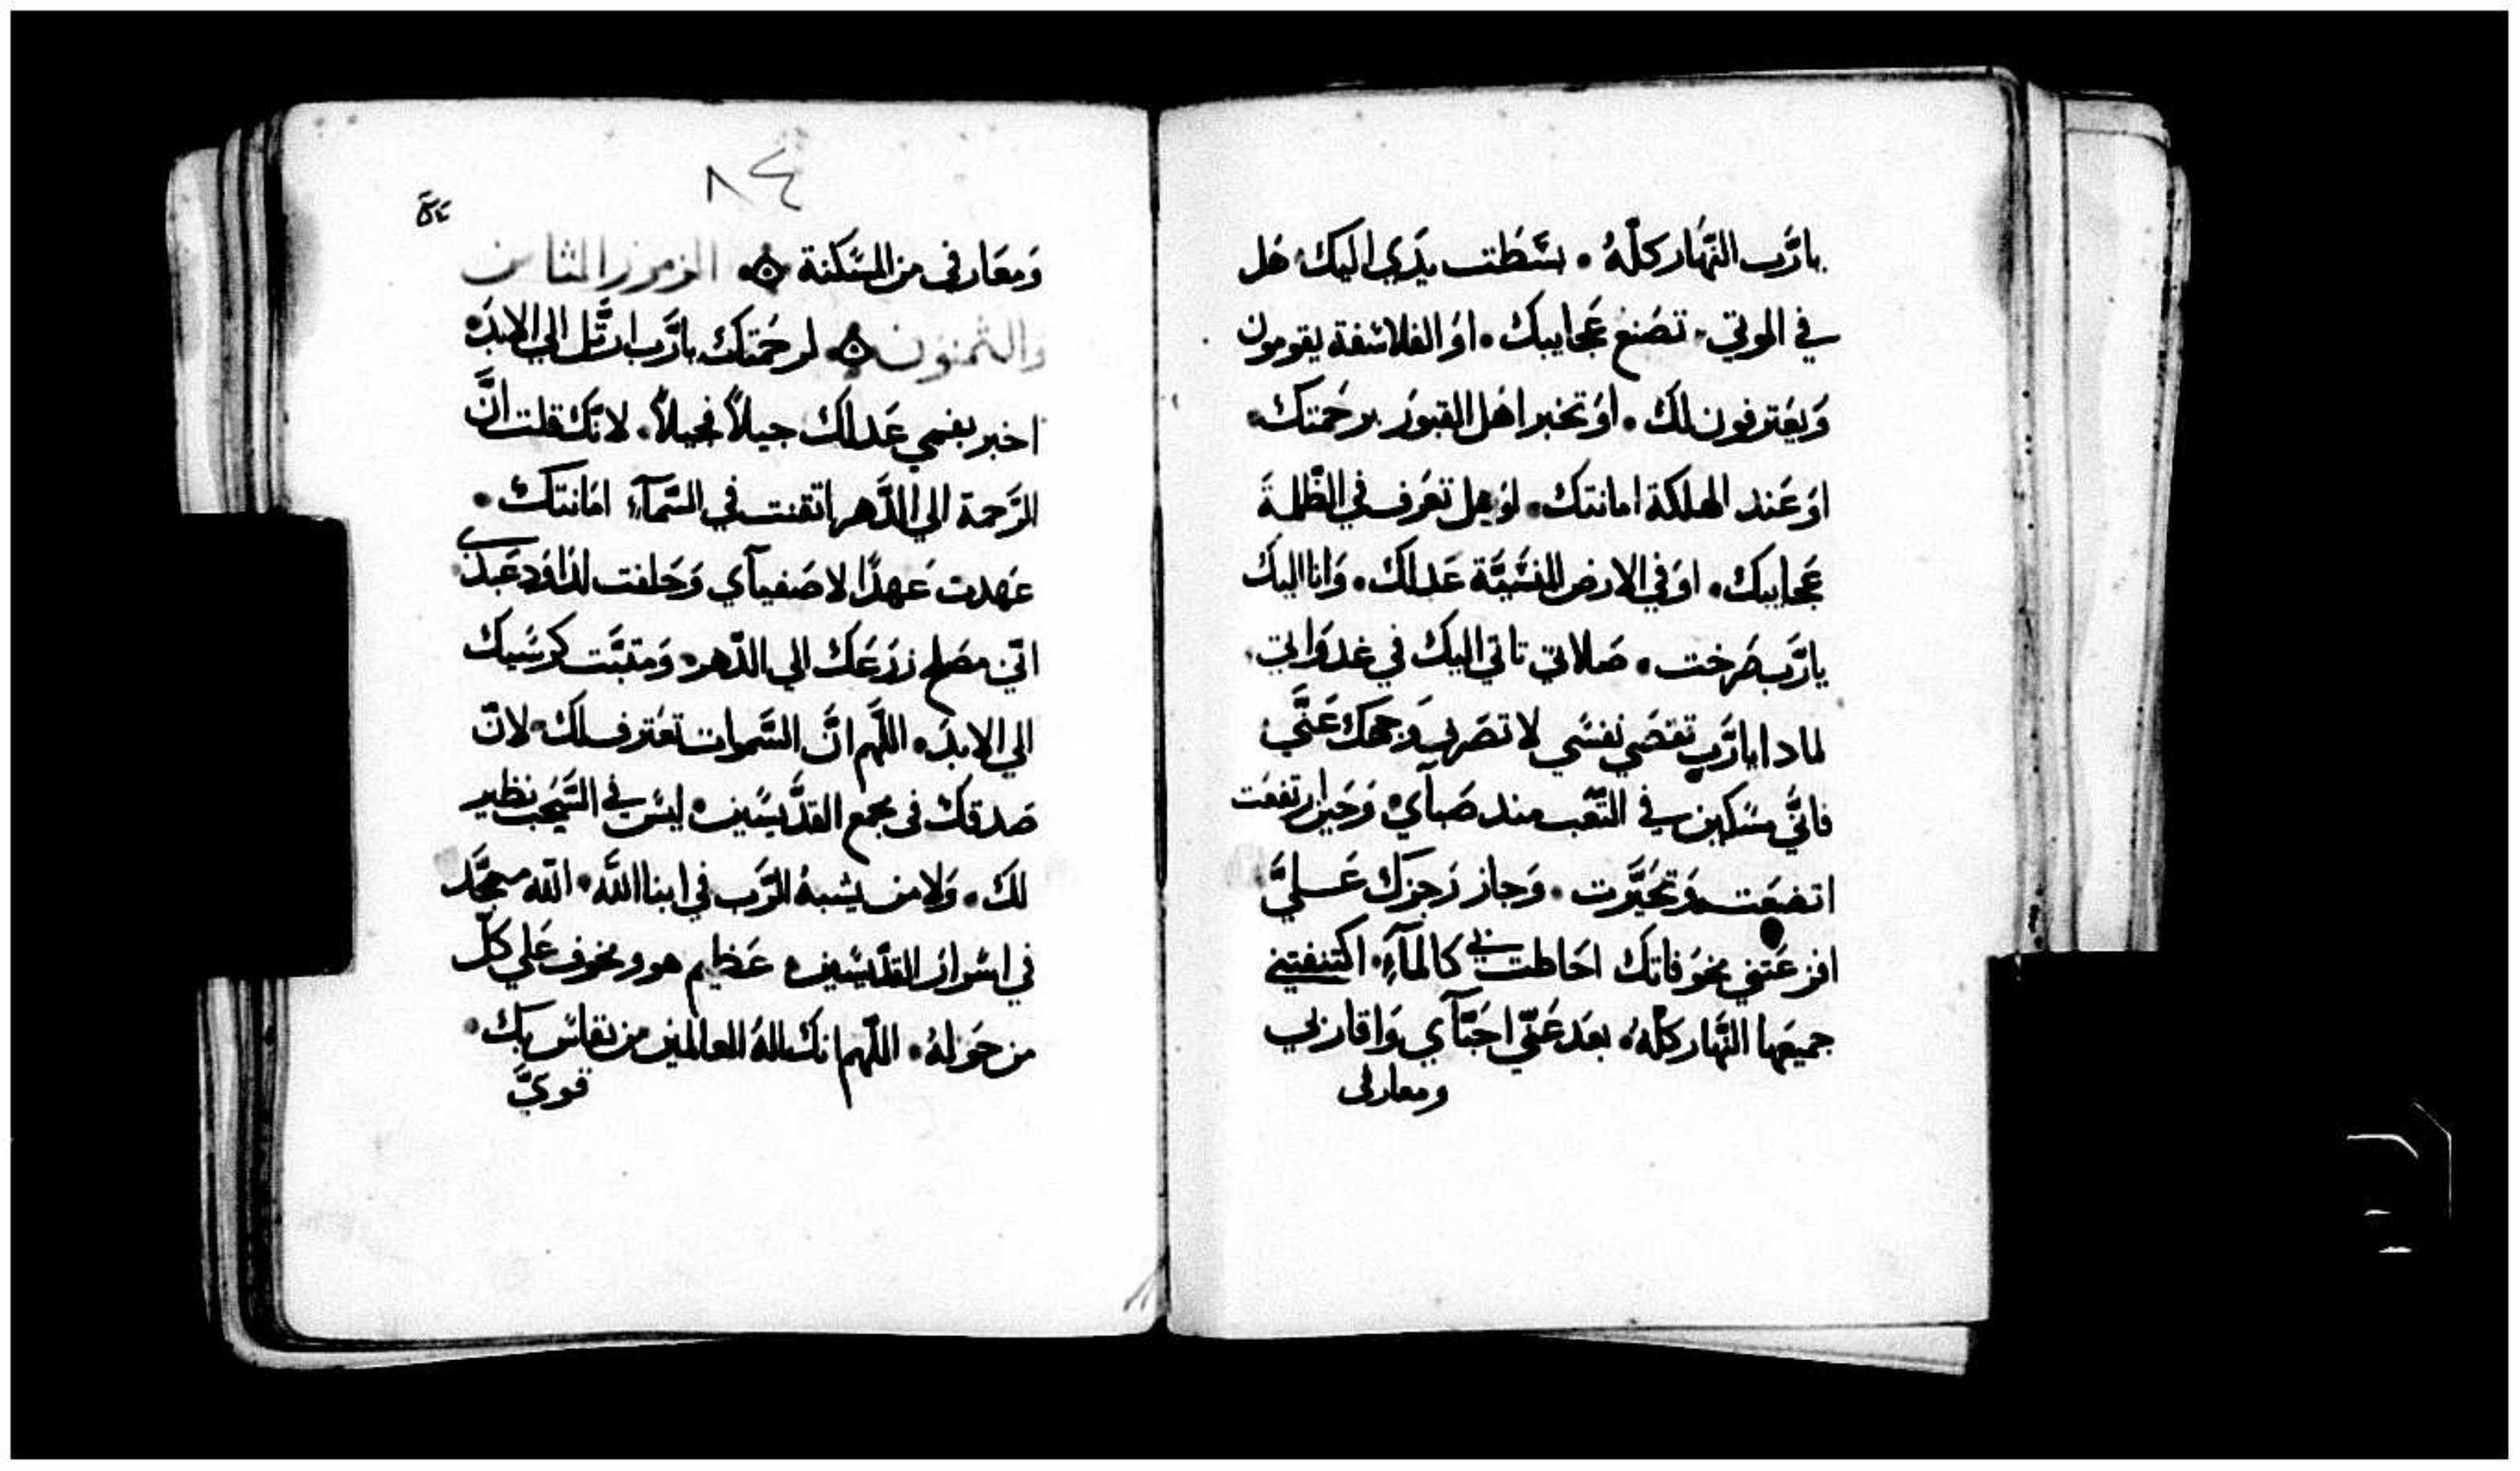 يارَّب النَّهار كلّهُ • بسَّطتُ يدَي اليك هَل
في الموتي • تصنعُ عَجايبك • اوُ الفلاسَفة يقومون
وَيعَترفون لك • اوُ تخبر اهَل القبوُر برحَمتك •
اوَ عَند الهلكة امانتك • اوَ هل تعَرف في الظّلمةَ
عَجايبك • اوَ في الارض المنسَّيَّة عَدلك • وَانا اليك
يارَّب صَرخت • صَلاتي تاتي اليك في غدوَاتي •
لمادا يارَّب تقصَي نفسَي لا تصَرف وَجهَك عَنَّي
فانّي مسَكين في التّعَب مند صَبآي • وَحَين ارتفعَت
اتضعَت وَتحَيَّرت • وَجاز رَجزك عَليَّ
افزعَتني مخوَفاتك احَاطت بي كالمآءَ • اكتنفتني
جميعَها النَّهار كلّهُ • بعَد عَنّي احَبّآي وَاقاربي
ومعارفي
٨٤
وَمعَارفي من المسَكنة • المزمور الثامن
والثمنون • لرحَمتك يارَّب ارتَّل الي الابدَ •
اخبر بفمي عَدلك جيلاً فجيلاً • لانَّك قلت انَّ
الرَّحمة الي الدَّهر اتقنت في السَّمآءَ امَانتك •
عَهدت عَهدًا لاصَفيآي وَحَلفت لداوُد عَبدي
انّي مصَلح زرَعَك الي الدّهر • وَمتبَّت كرسَيك
الي الابدَ • اللَّهم انَّ السَّموات تعَترف لك • لانّ
صَدقك في مجمع القدَّيسَين • ليسَ في السَّحَب نظير
لك • وَلا من يشبهُ الرَّب في ابنا اللَّه • اللّه ممجَّد
في اسَوار القدّيسَين • عَظيم هو ومخوف عَلي كلّ
من حَولهُ • اللّهم انك الهُ العالمين من يقاسَ بك •
قويَّ